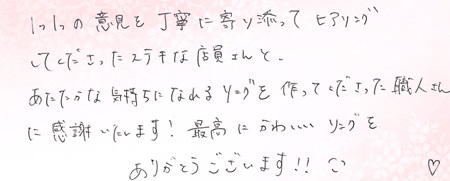 1つ1つの意見を丁寧に寄り添ってヒアリング
してくださったステキな店員さんと、
あたたかな気持ちになれるリングを作ってくださった職人さん
に感謝いたします！最高にかわいいリングを
ありがとうございます!!